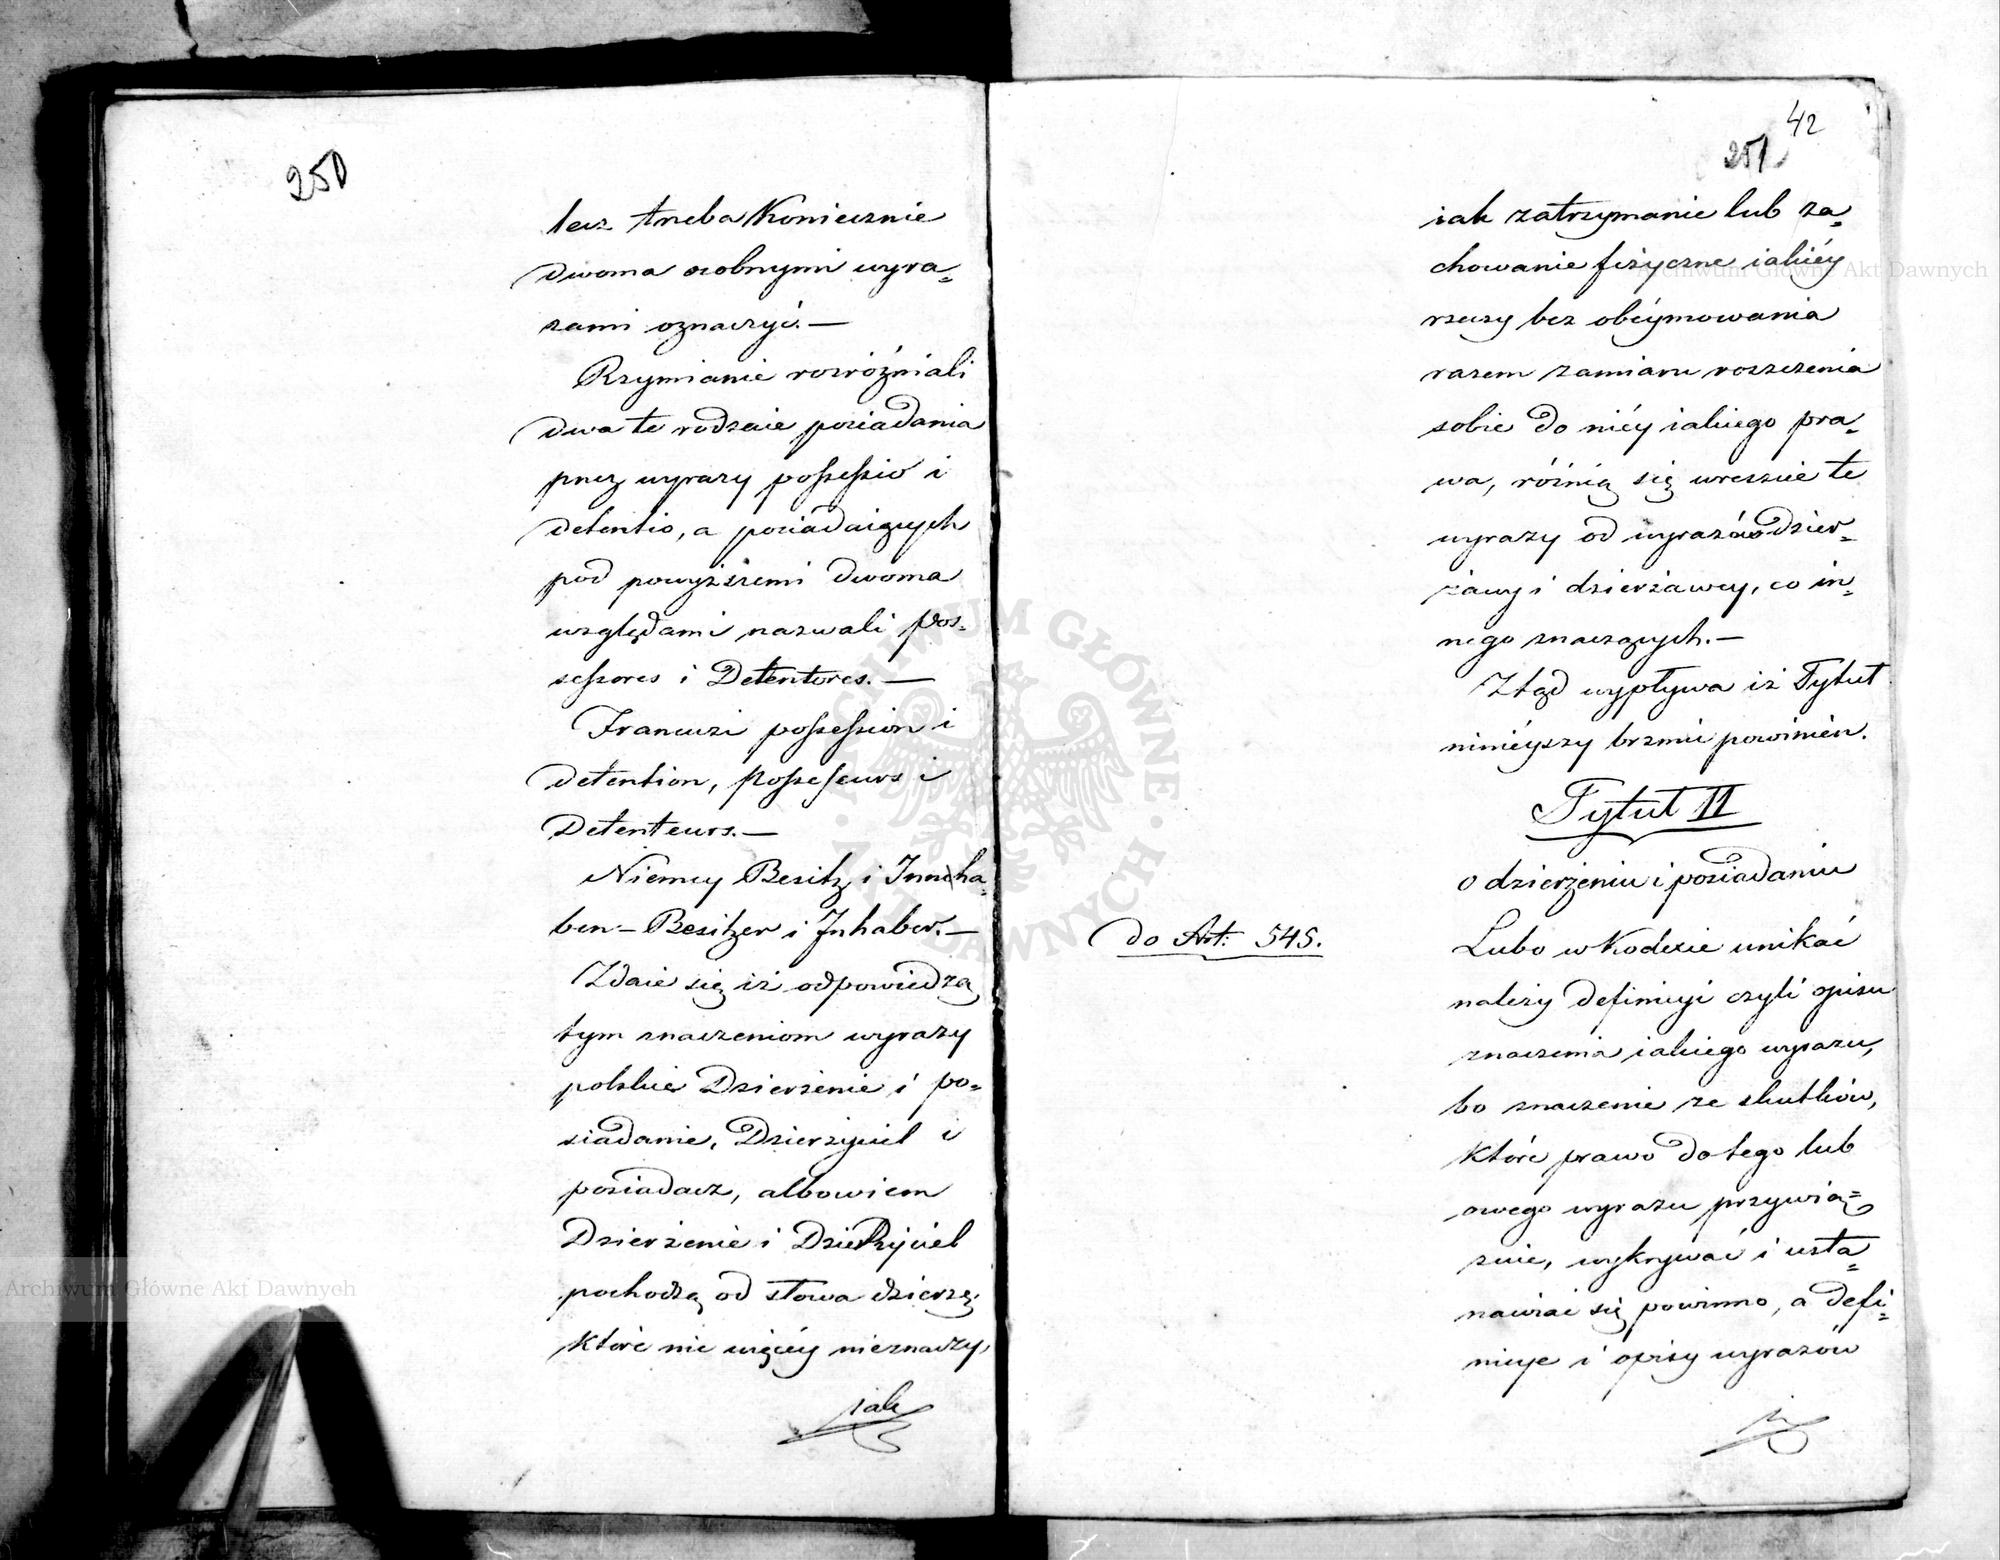 250
lecz trzeba Koniecznie
dwoma osobnymi wyra=
zami oznaczyć.—
Rzymianie rozróżniali
dwa te rodzaie posiadania
przez wyrazy possessio i
detentio, a posiadaiących
pod powyższemi dwoma
względami nazwali pos=
sessores i Detentores.—
Francuzi possession i
detention, possesseurs i
Detenteurs.—
Niemcy Besitz i Inneha=
ben — Besitzer i Inhaber.—
Zdaie się iż odpowiedzą
tym znaczeniom wyrazy
polskie Dzierżenie i po=
siadanie, Dzierżyciel i
posiadacz, albowiem
Dzierżenie i Dzierżyciel
pochodzą od słowa dzierżę
które nic więcéy nieznaczy,
iak
42
251
iak zatrzymanie lub za=
chowanie fizyczne iakiéy
rzeczy bez obéymowania
razem zamiaru roszczenia
sobie do niéy iakiego pra=
wa, różnią się wreszcie te
wyrazy od wyrazów dzier=
żawy i dzierżawcy, co in=
nego znaczących.—
Ztąd wypływa iż Tytuł
ninieyszy brzmieć powinien.
Tytuł II
o dzierżeniu i posiadaniu
do Art: 545.
Lubo w Kodexie unikać
należy definicyi czyli opisu
znaczenia iakiego wyrazu,
bo znaczenie ze skutków,
które prawo do tego lub
owego wyrazu przywią=
zuie, wykrywać i usta=
nawiać się powinno, a defi=
nicye i opisy wyrazów
Archiwum Główne Akt Dawnych
Archiwum Główne Akt Dawnych
ARCHIWUM GŁÓWNE AKT DAWNYCH